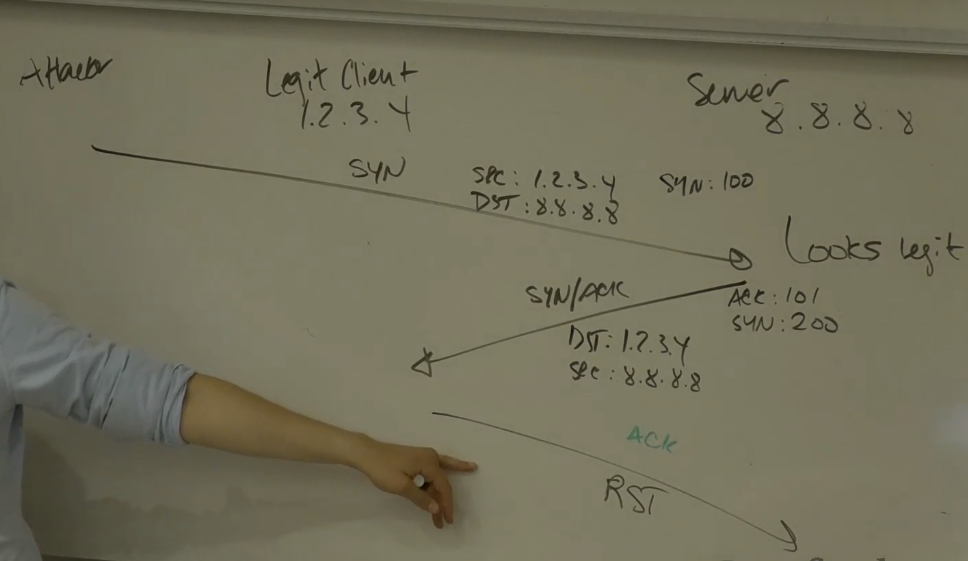 Attacker
Legit Client
1.2.3.4
Server
8.8.8.8
SYN
SRC: 1.2.3.4 SYN: 100
DST: 8.8.8.8
Looks legit
SYN/ACK
ACK: 101
SYN: 200
DST: 1.2.3.4
SRC: 8.8.8.8
ACK
RST